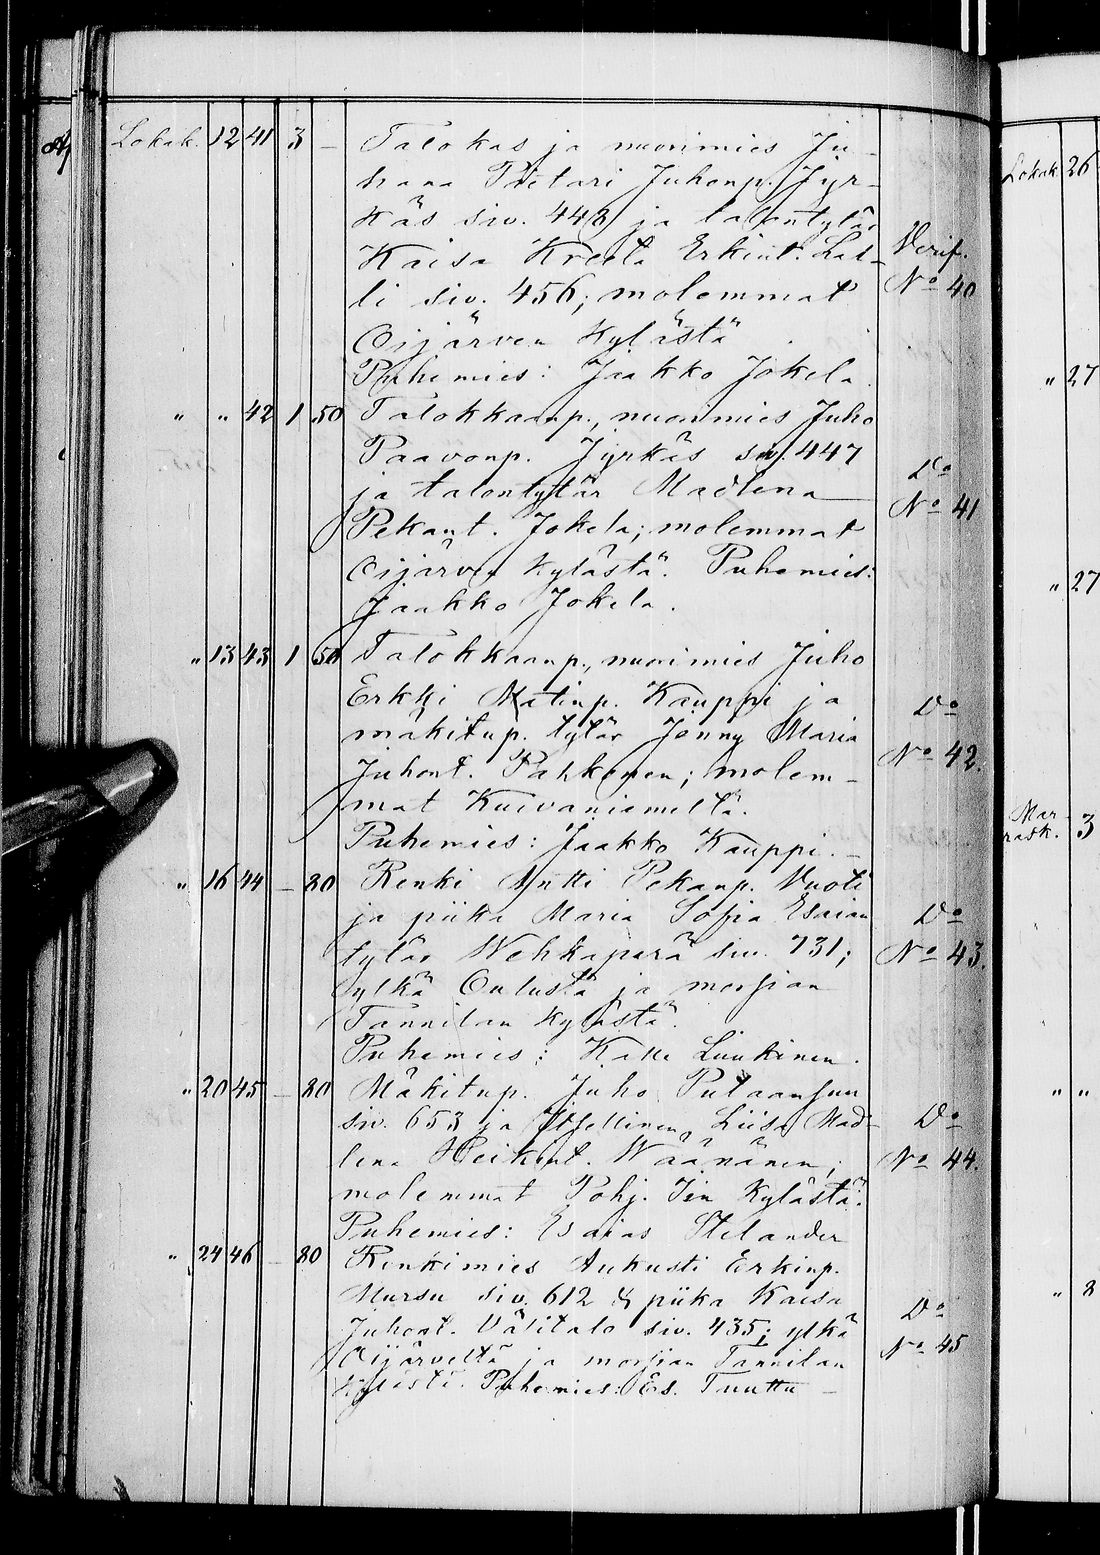 Lokak. 12 41 3 — Talokas ja nuorimies Ju-
hana Pietari Juhonp. Jyr-
käs siv. 448 ja talontytär
Kaisa Kreeta Erkint. Lal-
li siv. 456; molemmat
Oijärven kylästä
Puhemies: Jaakko Jokela.
Verif.
No 40
" " 42 1 50 Talokkaanp., nuorimies Juho
Paavonp. Jyrkäs siv. 447
ja talontytär Madlena
Pekant. Jokela; molemmat
Oijärven kylästä. Puhemies:
Jaakko Jokela.
Do
No 41
" 13 43 1 50 Talokkaanp., nuorimies Juho
Erkki Matinp. Kauppi ja
mäkitup. tytär Jenny Maria
Juhont. Pahkanen; molem-
mat Kuivaniemeltä.
Puhemies: Jaakko Kauppi. —
Do
No 42.
" 16 44 — 80 Renki Antti Pekanp. Vuoti
ja piika Maria Sofia Esaian
tytär Wehkaperä siv. 731;
ylkä Oulusta ja morsian
Tannilan kylästä.
Puhemies: Kalle Liukinen.
Do
No 43.
" 20 45 — 80 Mäkitup. Juho Putaansuu
siv. 653 ja Itsellinen Liisa Mad-
lena Heikint. Wäänänen;
molemmat Pohj. Iin kylästä.
Puhemies: Esaias Stelander
Do
No 44.
" 24 46 — 80 Renkimies Aukusti Erkinp.
Mursu siv. 612 & piika Kaisa
Juhont. Välitalo siv. 435; ylkä
Oijärveltä ja morsian Tannilan
kylästä. Puhemies: Es. Tuuttu —
Do
No 45
Lokak. 26
" 27
" 27
Mar-
rask. 3
" "
" 8